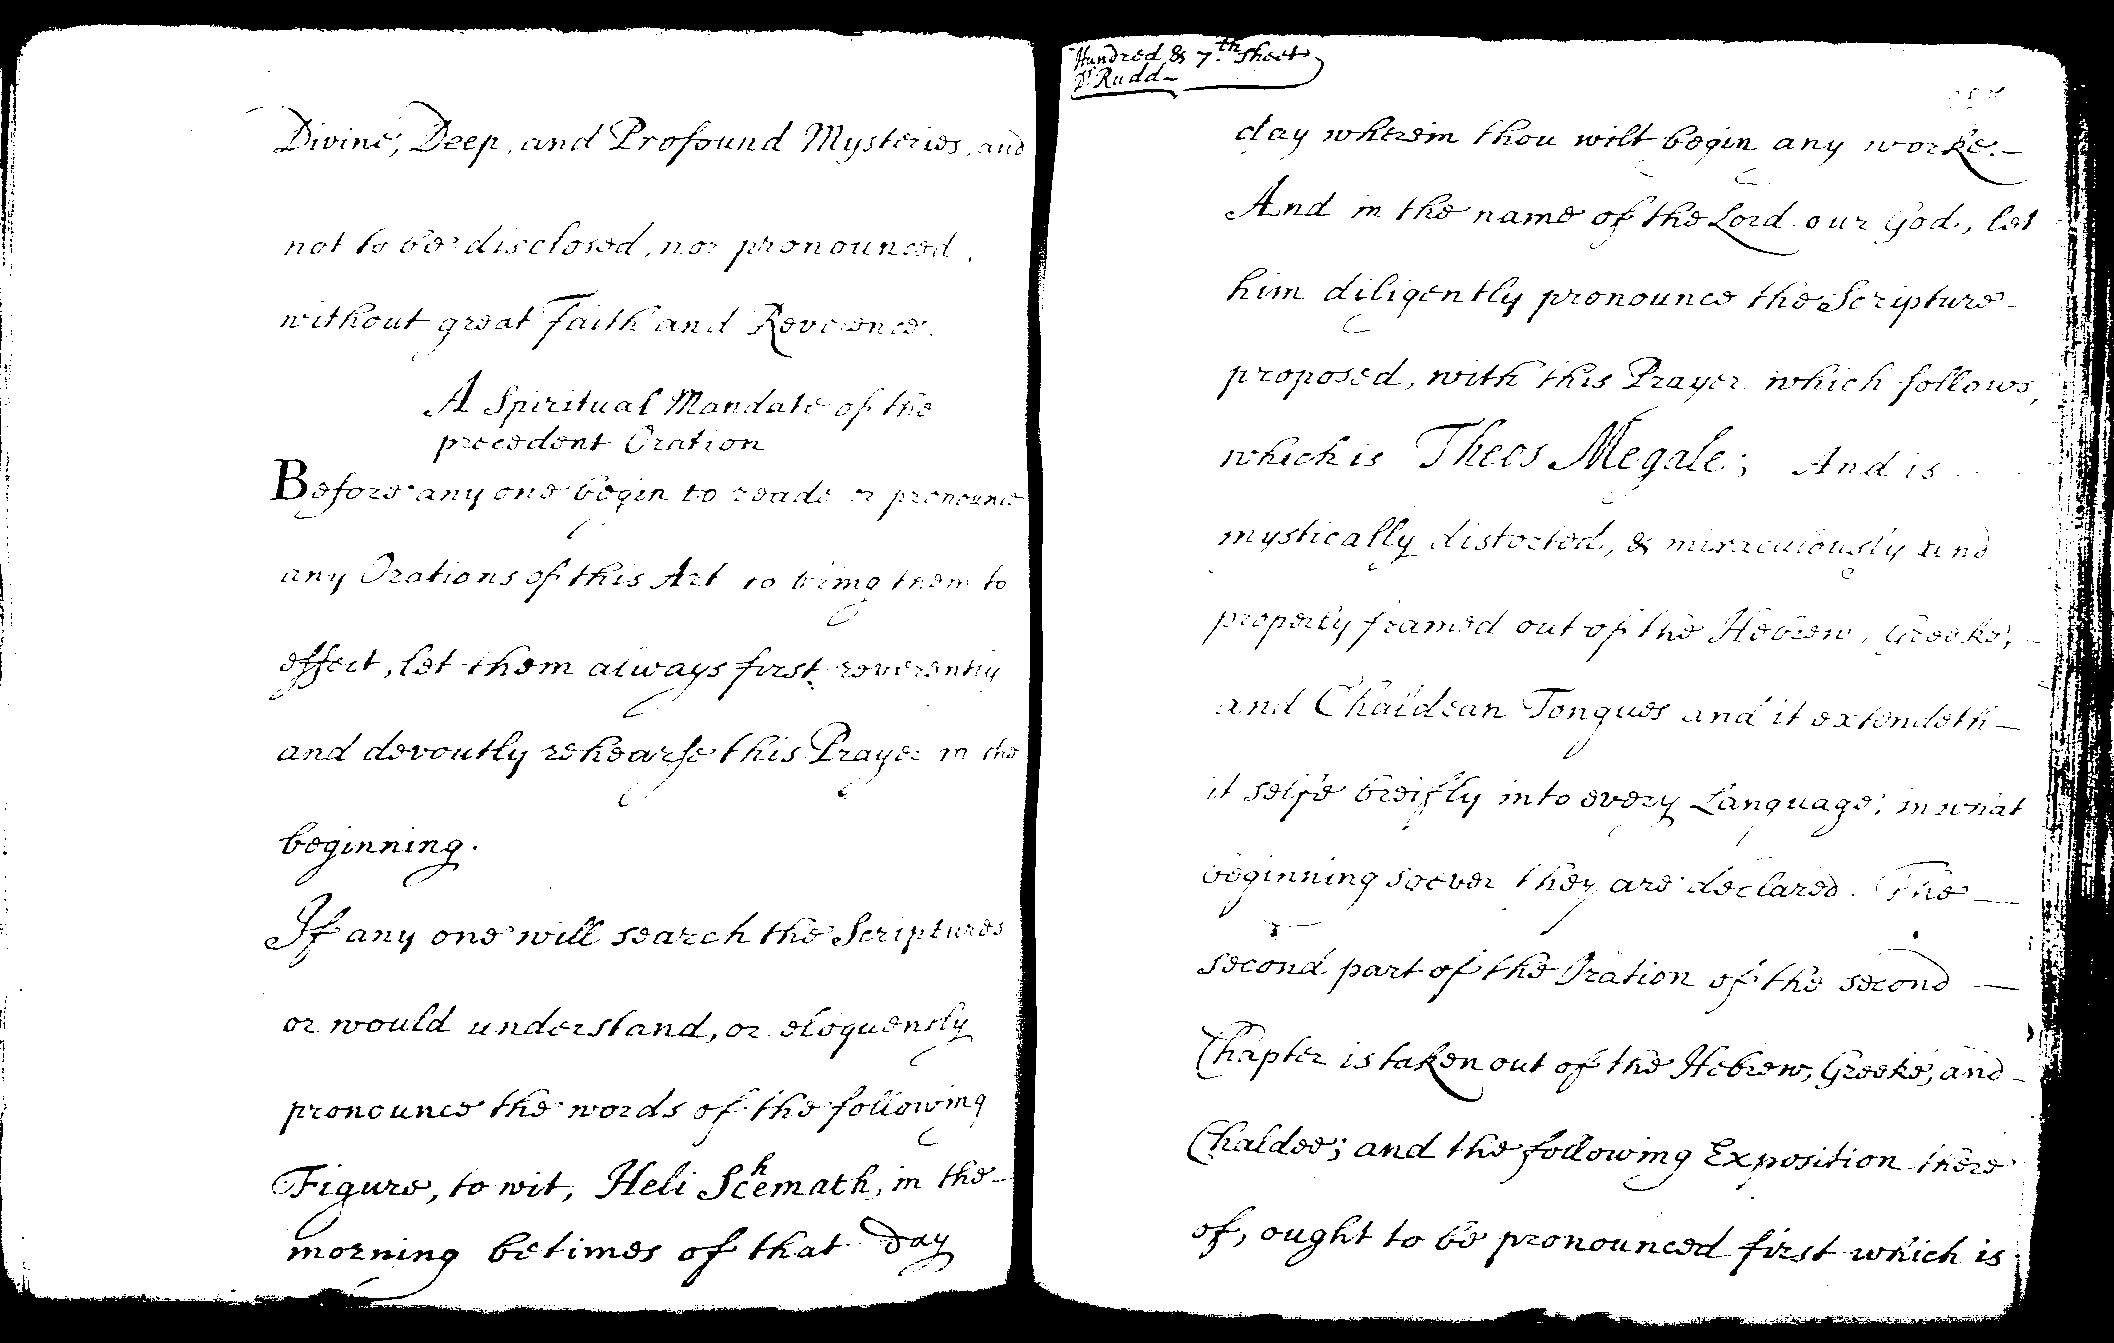 Divine, Deep, and Profound Mysteries, and
not to be disclosed, nor pronounced,
without great Faith and Reverence.
A Spiritual Mandate of the
precedent Oration
Before any one begin to reade or pronounce
any Orations of this Art to bring them to
effect, let them always first reverently
and devoutly rehearse this Prayer in the
beginning.
If any one will search the Scriptures
or would understand, or eloquently
pronounce the words of the following
Figure, to wit, Heli Schemath, in the
morning betimes of that Day
Hundred & 7th sheet
Dr Rudd
day wherein thou wilt begin any worke.
And in the name of the Lord our God, let
him diligently pronounce the Scripture
proposed, with this Prayer which follows,
which is Theos Megale; And is
mystically distorted, & miraculously and
properly framed out of the Hebrew, Greeke,
and Chaldean Tongues and it extendeth
it selfe breifly into every Language, in what
beginning soever they are declared. The
second part of the Oration of the second
Chapter is taken out of the Hebrew, Greeke, and
Chaldee; and the following Exposition there
of, ought to be pronounced first which is